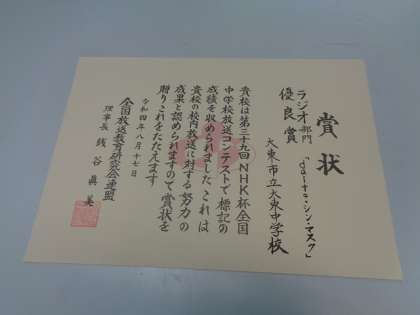 賞状
ラジオ部門
優良賞
大東市立大東中学校
貴校は第三十九回NHK杯全国
中学校放送コンテストで標記の
成績を収められました これは
貴校の校内放送に対する努力の
成果と認められますので賞状を
贈りこれをたたえます
令和四年八月十七日
全国放送教育研究会連盟
理事長 銭谷眞美